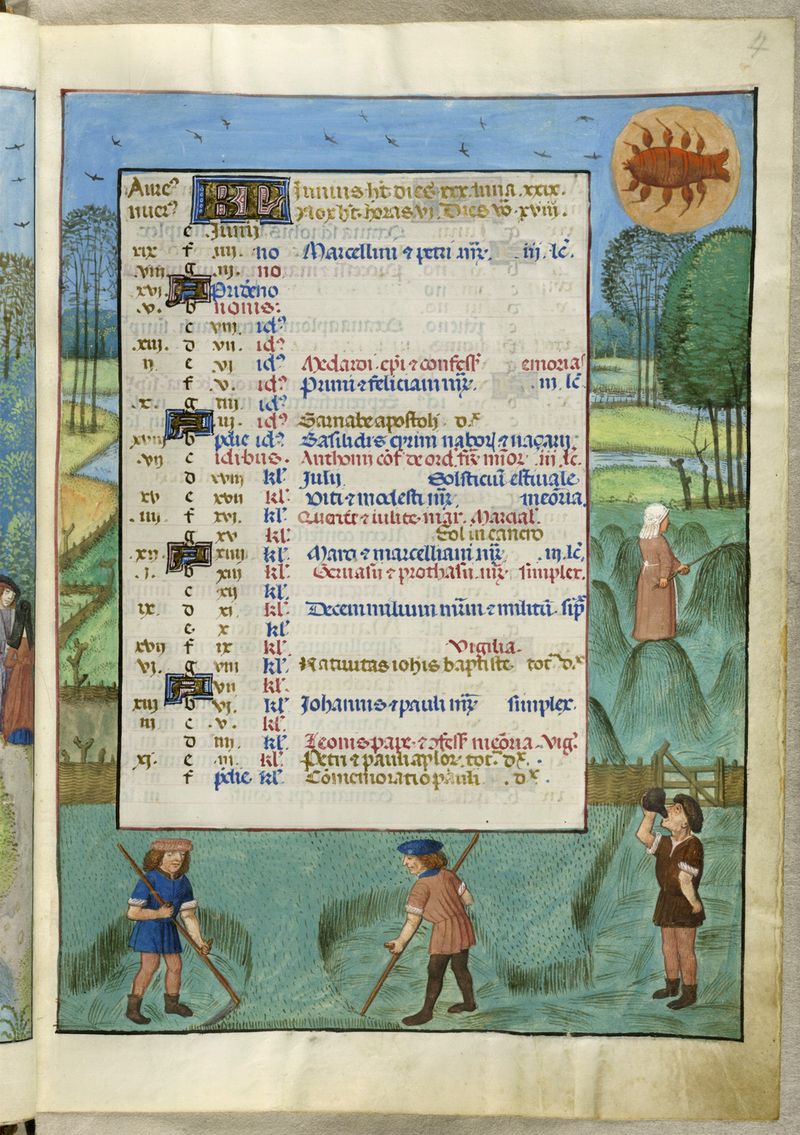 4
Aure⁹ KL Junius ht dies xxx. luna xxix.
nuer⁹ Nox ht horas vi. Dies vo xviii.
e Junii
xix f iiii. no Marcellini ⁊ petri mr. iii. lc.
viii g iii. no
xvi. A Pridie no
.v. b nonis.
c viii. id⁹
.xiii. d vii. id⁹
ii e vi id⁹ Medardi. epi ⁊ confess emorias
f .v. id⁹ Primi ⁊ feliciani mr. iii. lc.
.x. g iiii id⁹
A iii. id⁹ Barnabe apostoli. dx
xviii b pdie id⁹ Basilidis cyrini nabor ⁊ naçarii.
.vii c idibus. Anthonii cof. de ord. frm minor .iii. lc.
d xviii kl. Julii. Solsticiu estiuale
xv e xvii kl. Viti ⁊ modesti mr. meoria.
.iiii. f xvi. kl. Quirici ⁊ iulite. mar. Marcial.
g xv kl. Sol in cancro
.xii. A xiiii kl. Marci ⁊ marcelliani mr. .iii. lc.
.i. b xiii kl. Geruasii ⁊ prothasii. mr. simplex.
c xii kl.
ix. d xi. kl. Decem milium mrum ⁊ militu. sip
e. x kl.
xvii f ix kl. Vigilia.
vi. g viii kl. Natiuitas iohis baptiste. tot. dx
A vii kl.
xiiii b vi. kl. Johannis ⁊ pauli mr. simplex.
iii c .v. kl.
d iiii. kl. Leonis pape. ⁊ ɔfess meoria. Vig.
.xi. e .iii. kl. Petri ⁊ pauli aplor. tot. dx.
f pdie kl. Comemoratio pauli. dx.